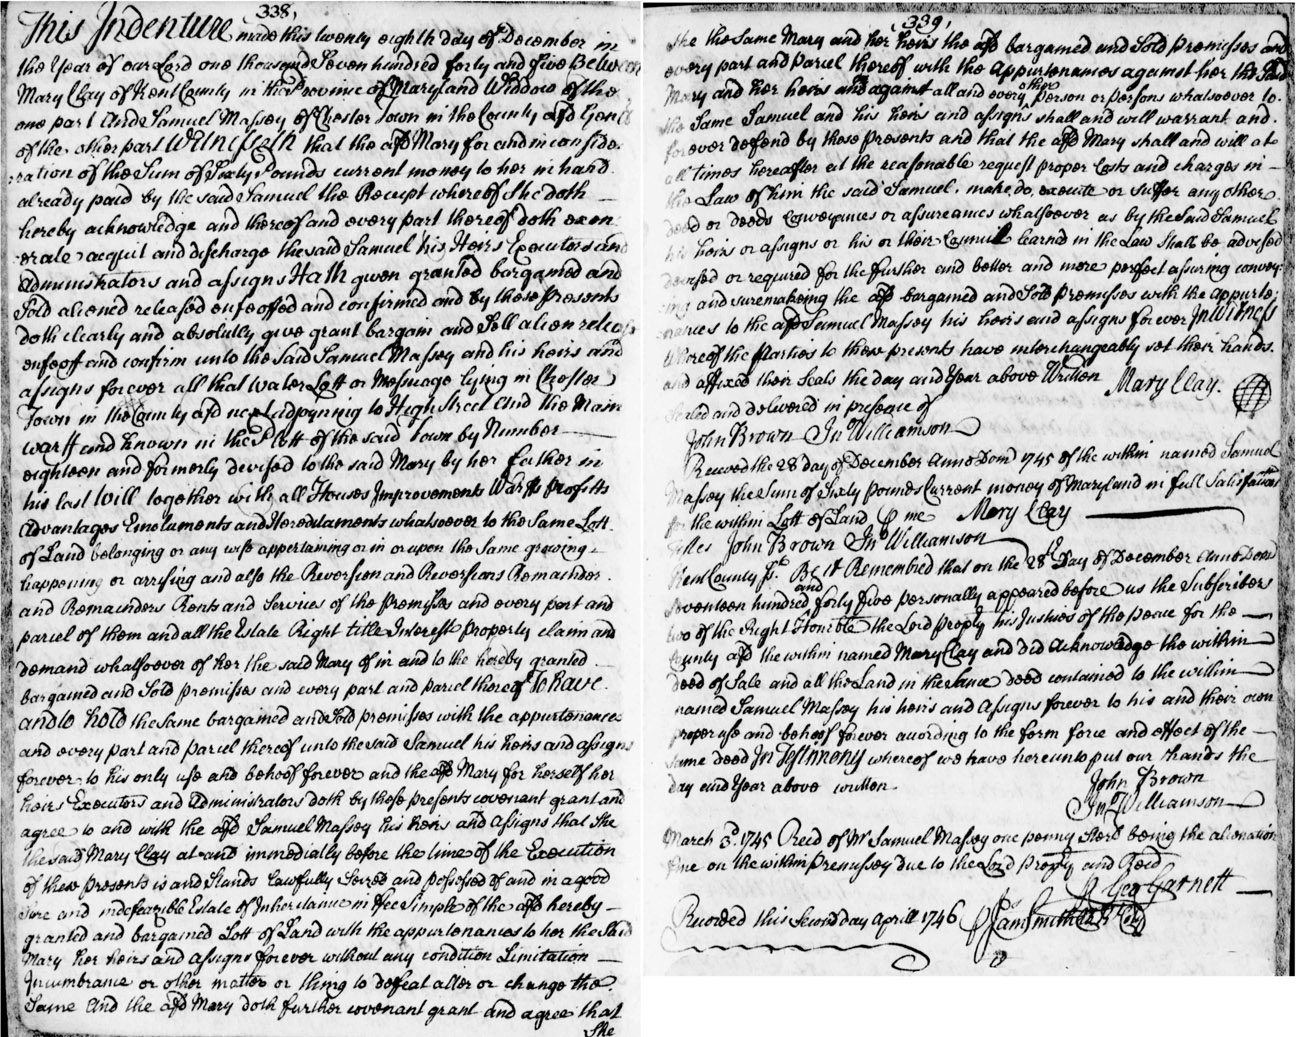 338,
This Indenture made this twenty eighth day of December in
the Year of our Lord one thousand Seven hundred forty and five Between
Mary Clay of Kent County in the Province of Maryland Widdow of the
one part And Samuel Massey of Chester Town in the County afd Gentl
of the other part Witnesseth that the afd Mary for and in conside
ration of the Sum of Sixty Pounds current money to her in hand
already paid by the said Samuel the Receipt whereof She doth
hereby acknowledge and thereof and every part thereof doth exon
erate acquit and discharge the said Samuel his Heirs Executors and
Administrators and assigns Hath given granted bargained and
Sold aliened released enfeoffed and confirmed and by these presents
doth clearly and absolutly give grant bargain and Sell alien release
enfeoff and confirm unto the Said Samuel Massey and his heirs and
assigns forever all that Water Lott or Messuage lying in Chester
Town in the County afd next adjoynnig to High Street and the Main
warff and known in the Plott of the said Town by Number
eighteen and formerly devised to the said Mary by her Father in
his last Will together with all Houses Improvements Warffs profitts
Advantages Emoluments and Hereditaments whatsoever to the Same Lott
of Land belonging or any wise appertaining or in or upon the Same growing
happening or arrising and also the Reversion and Reversions Remainder
and Remainders Rents and Services of the premisses and every part and
parcel of them and all the Estate Right title Interest property claim and
demand whatsoever of her the said Mary of in and to the hereby granted
bargained and Sold premisses and every part and parcel thereof To have
and to hold the same bargained and Sold premisses with the appurtenances
and every part and parcel thereof unto the said Samuel his heirs and assigns
forever to his only use and behoof forever and the afd Mary for herself her
heirs Executors and Administrators doth by these presents covenant grant and
agree to and with the afd Samuel Massey his heirs and Assigns that She
the said Mary Clay at and immediatly before the time of the Execution
of these presents is and Stands lawfully Seized and possessed of and in a good
Sure and indefeazible Estate of Inheritance in Fee Simple of the afd hereby
granted and bargained Lott of Land with the appurtenances to her the Said
Mary her heirs and assigns forever without any condition Limitation
Incumbrance or other matter or thing to defeat alter or change the
Same And the afd Mary doth further covenant grant and agree that
She
339,
She the Same Mary and her heirs the afd bargained and Sold premisses and
every part and Parcel thereof with the Appurtenances against her the Said
Mary and her heirs and against all and every other person or persons whatsoever to
the Same Samuel and his heirs and assigns shall and will warrant and
forever defend by these Presents and that the afd Mary shall and will at
all times hereafter at the reasonable request proper Costs and charges in
the Law of him the said Samuel, make do, execute or suffer any other
deed or deeds Conveyances or assureances whatsoever as by the Said Samuel
his heirs or assigns or his or their Counsil learned in the Law Shall be advised
devised or required for the further and better and more perfect assuring convey
ing and suremakeing the afd bargained and Sold Premisses with the appurte
nances to the afd Samuel Massey his heirs and assigns forever In Witness
Whereof the Parties to these presents have interchangeably set their hands
and affixed their Seals the day and Year above Written Mary Clay.
Sealed and delivered in presence of
John Brown Jno Williamson
Received the 28 day of December Anno Dom 1745 of the within named Samuel
Massey the Sum of Sixty pounds Current money of Maryland in full Satisfaction
for the within Lott of Land P me Mary Clay
Testes John Brown Jno Williamson
Kent County Ss. Be it Remembred that on the 28th Day of December Anno Dom
Seventeen hundred and forty five personally appeared before us the Subscribers
two of the Right Honrible the Lord Proprty his Justices of the peace for the
County afd the within named Mary Clay and did Acknowledge the within
deed of Sale and all the Land in the Same deed contained to the within
named Samuel Massey his heirs and Assigns forever to his and their own
proper use and behoof forever according to the form force and effect of the
same deed In Testimony whereof we have hereunto put our Hands the
day and Year above written
John Brown
Jno Williamson
March 3d. 1745 Recd of Mr Samuel Massey one penny Sterl being the alienation
fine on the within Premissey due to the Lord Proprty and Recd
P Geo Garnett
Recorded this Second day Aprill 1746 P Jam Smith